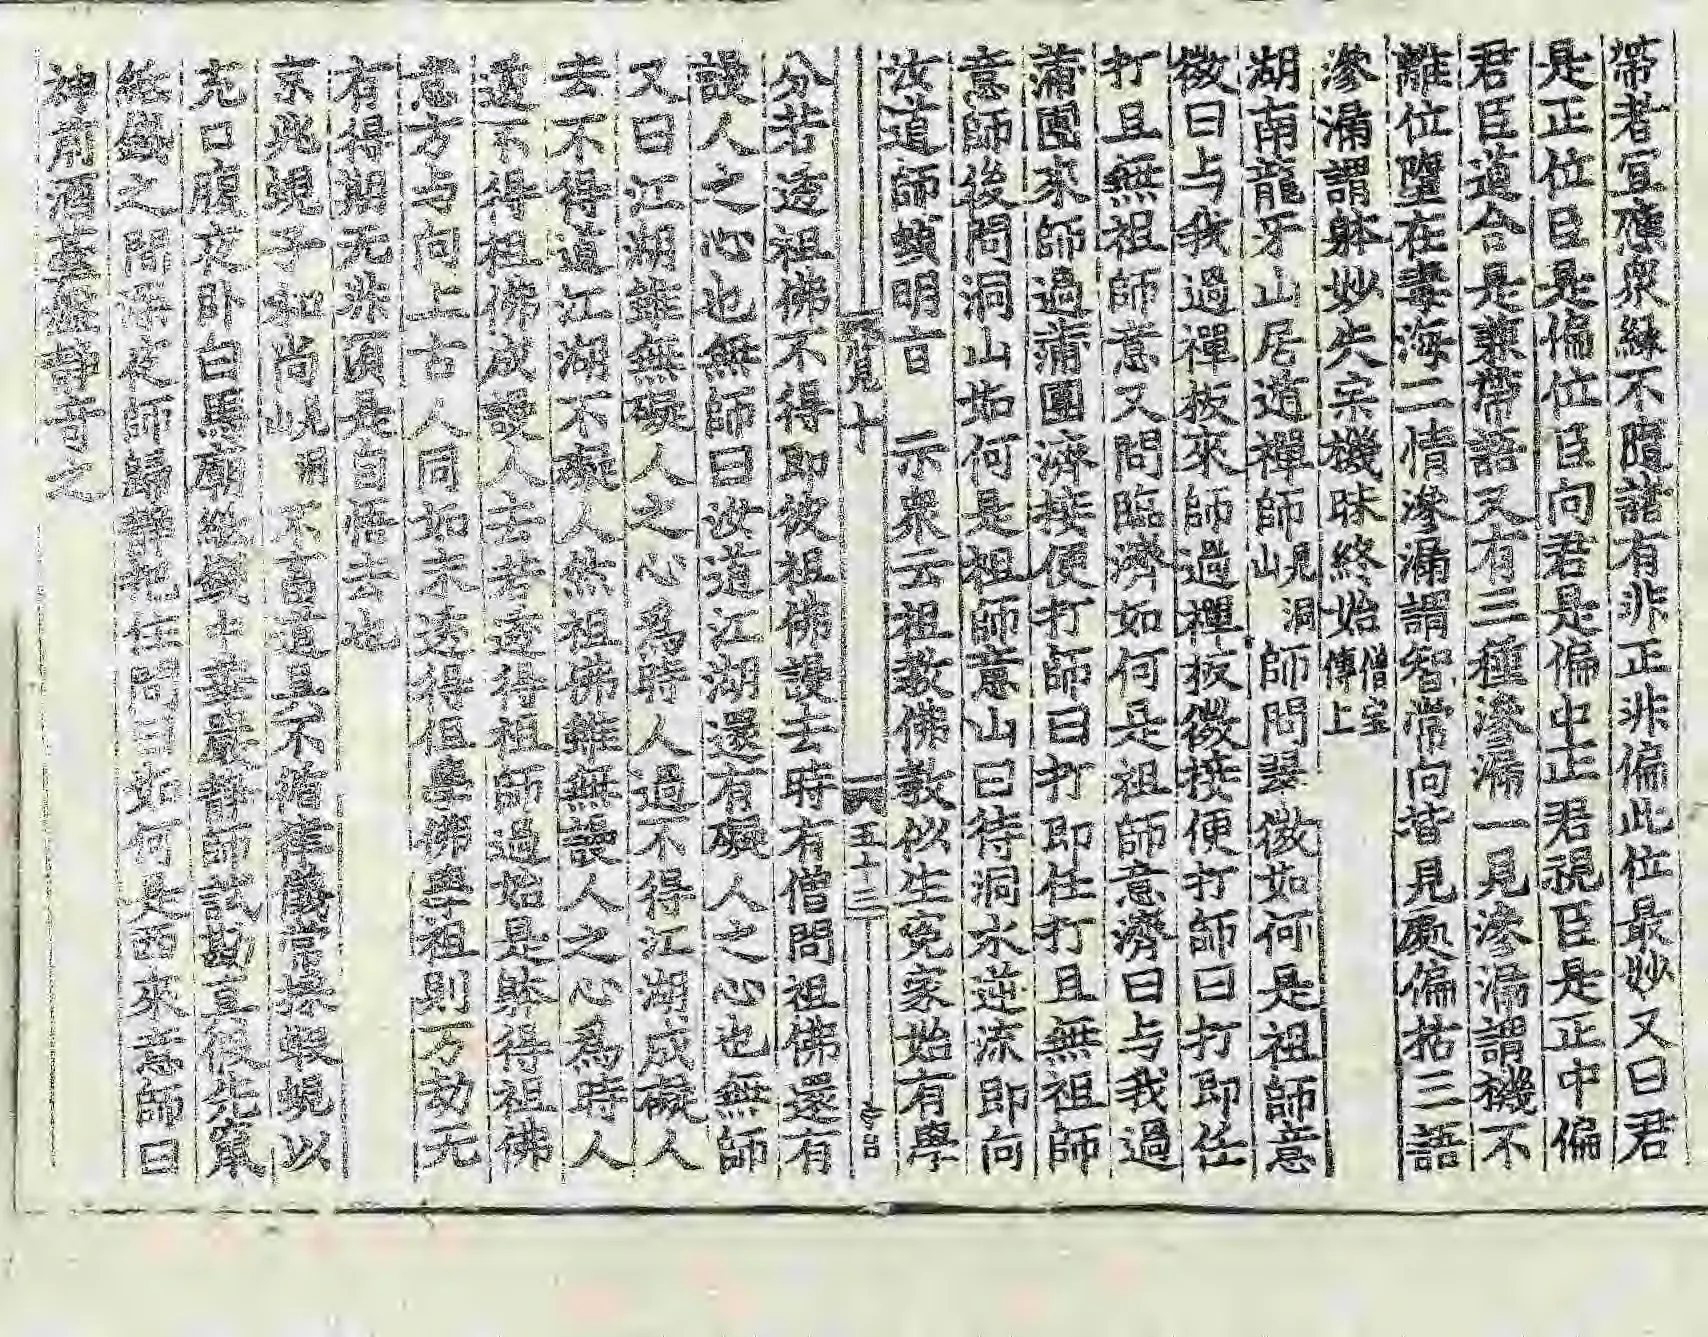 帶者冥應衆緣不隨諸有非正非偏此位最妙又曰君
是正位臣是偏位臣向君是偏中正君視臣是正中偏
君臣道合是兼帶語又有三種滲漏一見滲漏謂機不
離位墮在毒海二情滲漏謂智常向背見處偏枯三語
滲漏謂躰妙失宗機昧終始僧宝傳上
湖南龍牙山居遁禪師嗣洞山師問翠微如何是祖師意
微曰与我過禪板來師過禪板微接便打師曰打即任
打且無祖師意又問臨濟如何是祖師意濟曰与我過
蒲團來師過蒲團濟接便打師曰打即任打且無祖師
意師後問洞山如何是祖師意山曰待洞水逆流即向
汝道師始明旨　示衆云祖教佛教似生寃家始有學
見十　五十三
分若透祖佛不得即被祖佛謾去時有僧問祖佛還有
謾人之心也無師曰汝道江湖還有礙人之心也無師
又曰江湖雖無礙人之心爲時人過不得江湖成礙人
去不得道江湖不礙人然祖佛雖無謾人之心爲時人
透不得祖佛成謾人去若透得祖佛過始是躰得祖佛
意方与向上古人同如未透得但學佛學祖則万劫无
有得期无非須是自悟去也
京兆蜆子和尚嗣洞山不畜道具不循律儀常採蝦蜆以
充口腹夜卧白馬廟紙錢中華嚴靜師試勘直候先竄
紙錢之間深夜師歸靜把住問曰如何是西來意師曰
神前酒臺盤靜奇之